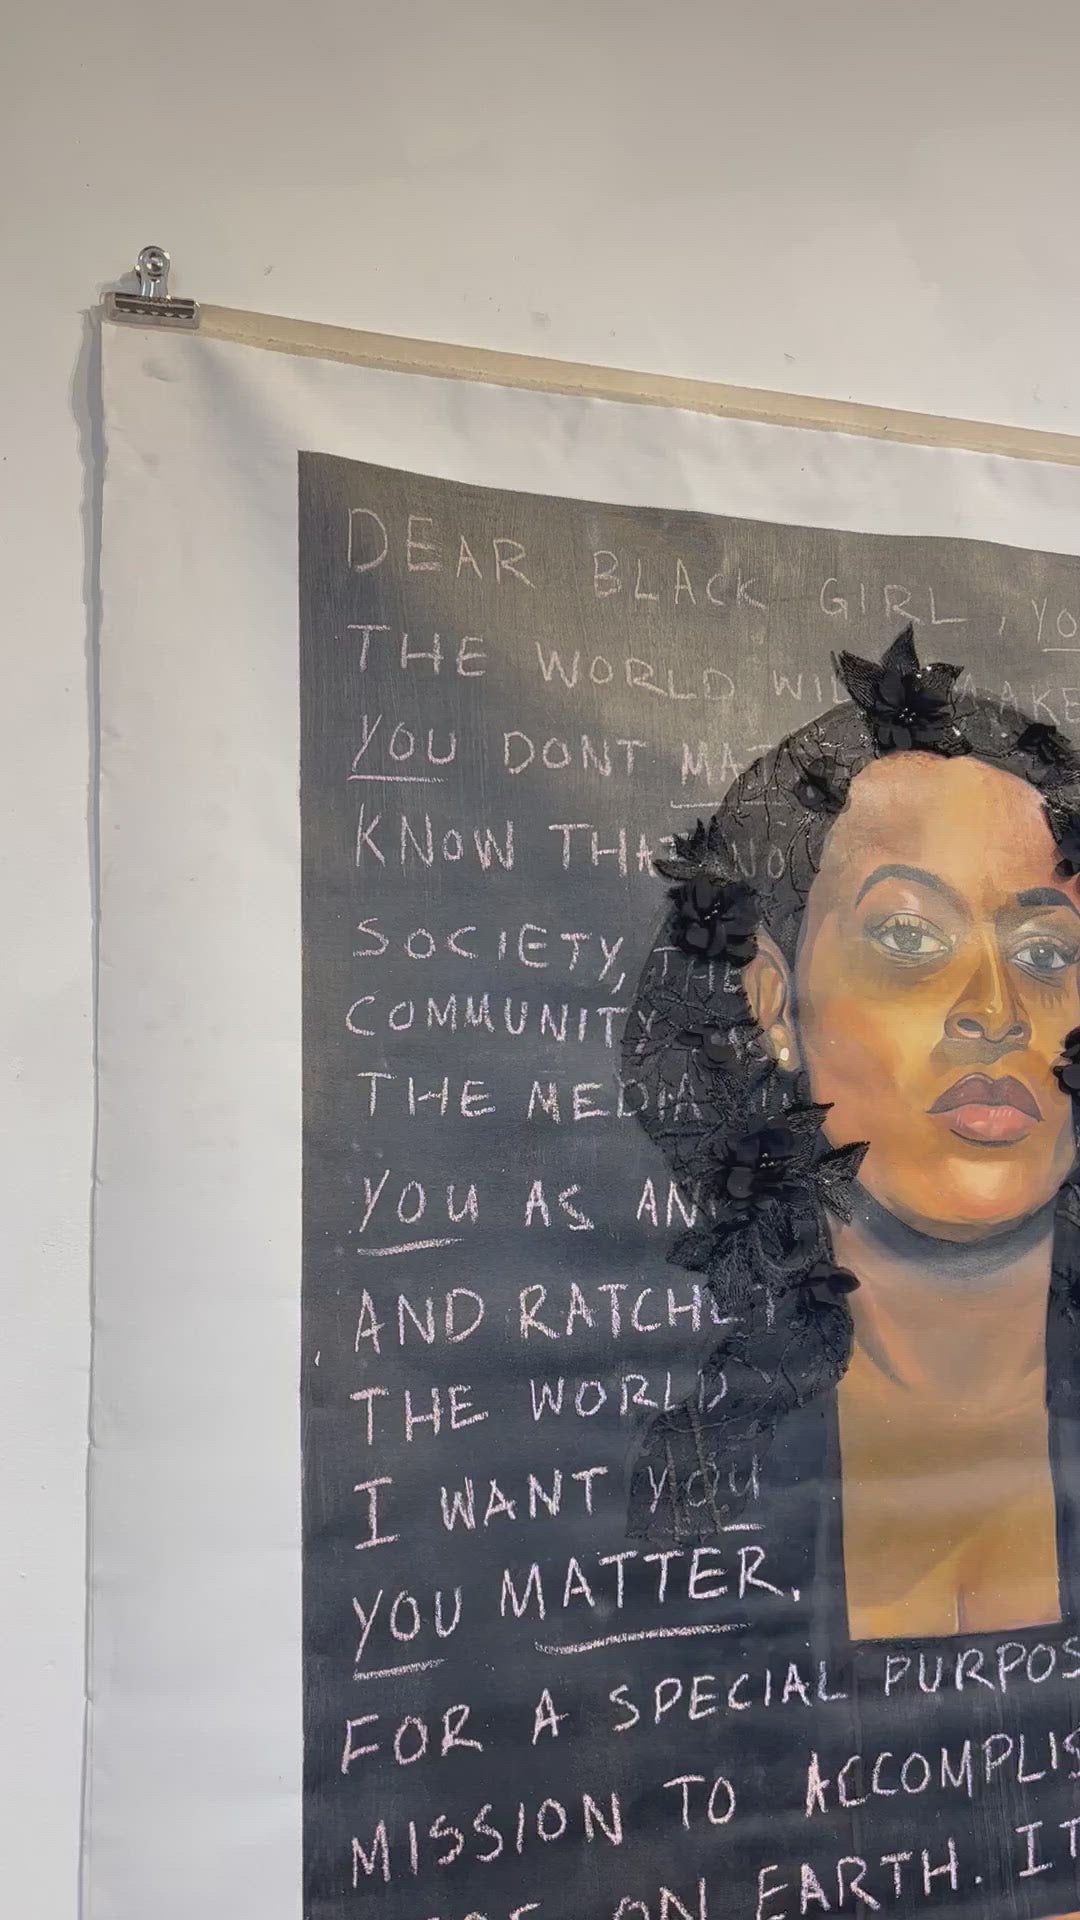 DEAR BLACK GIRL, YO
THE WORLD WILL MAKE
YOU DONT MAT
KNOW THAT NO
SOCIETY, THE
COMMUNITY
THE MEDIA
YOU AS AN
AND RATCHET
THE WORLD
I WANT YOU
YOU MATTER.
FOR A SPECIAL PURPOS
MISSION TO ACCOMPLIS
ON EARTH. IT